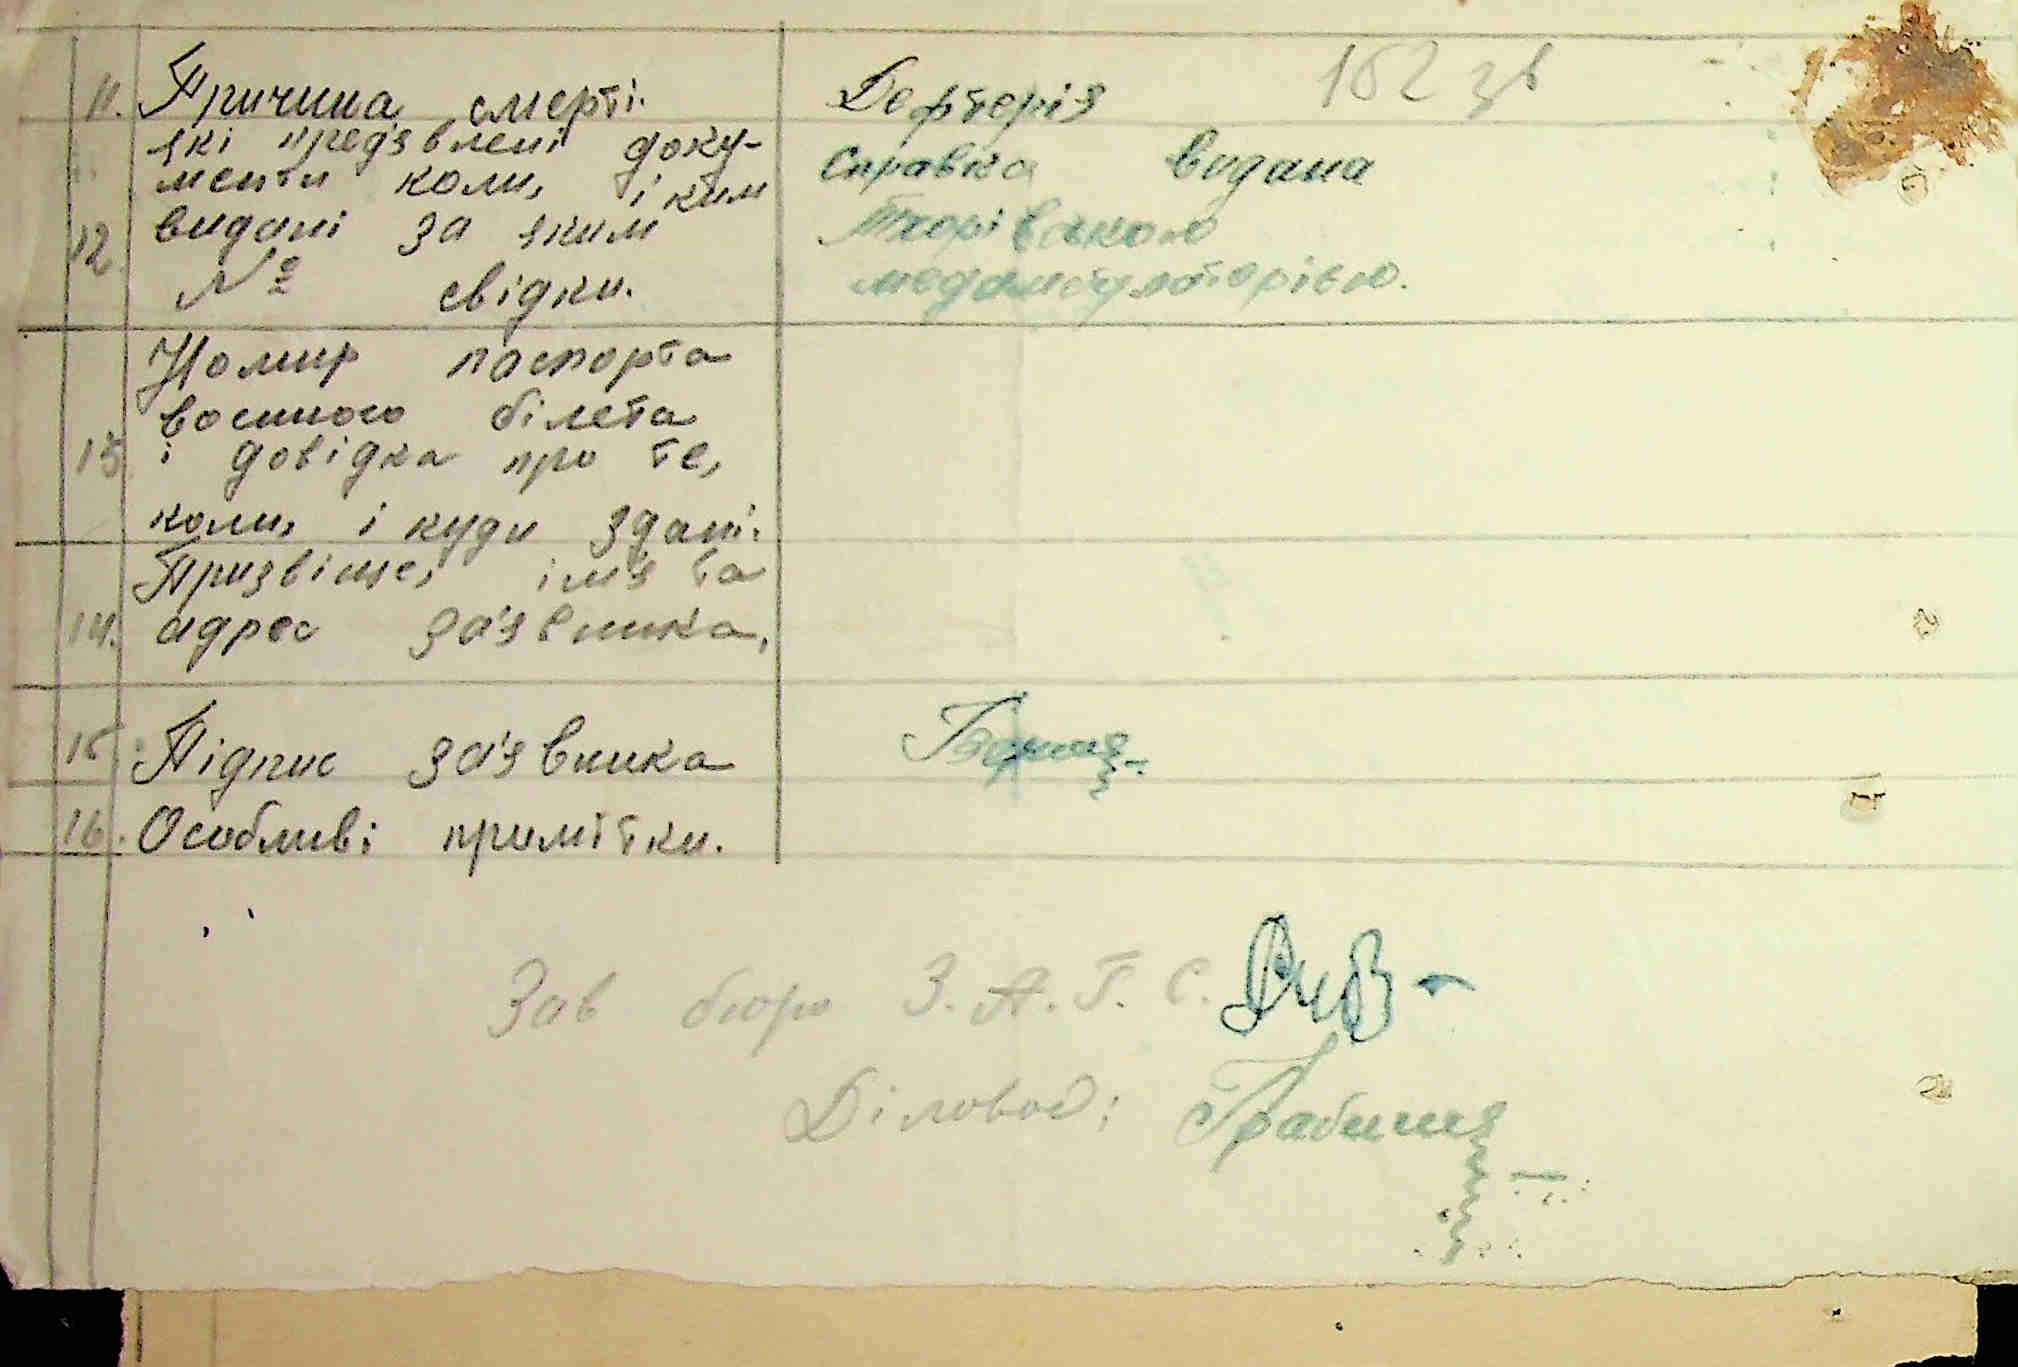 162 зв
11. Причина смерті. Дефтерія
які предявлені доку- Справка видана
менти коли, і ким
12. видані за яким Тхорівською
№ свідки. медамбулаторією.
Номир паспорта
военного білета
13. і довідка про те,
коли, і куди здані.
Призвіще, імя та
14. адрес заявника.
15. Підпис заявника
16. Особливі примітки.
Зав бюро З.А.Г.С.
Діловод: